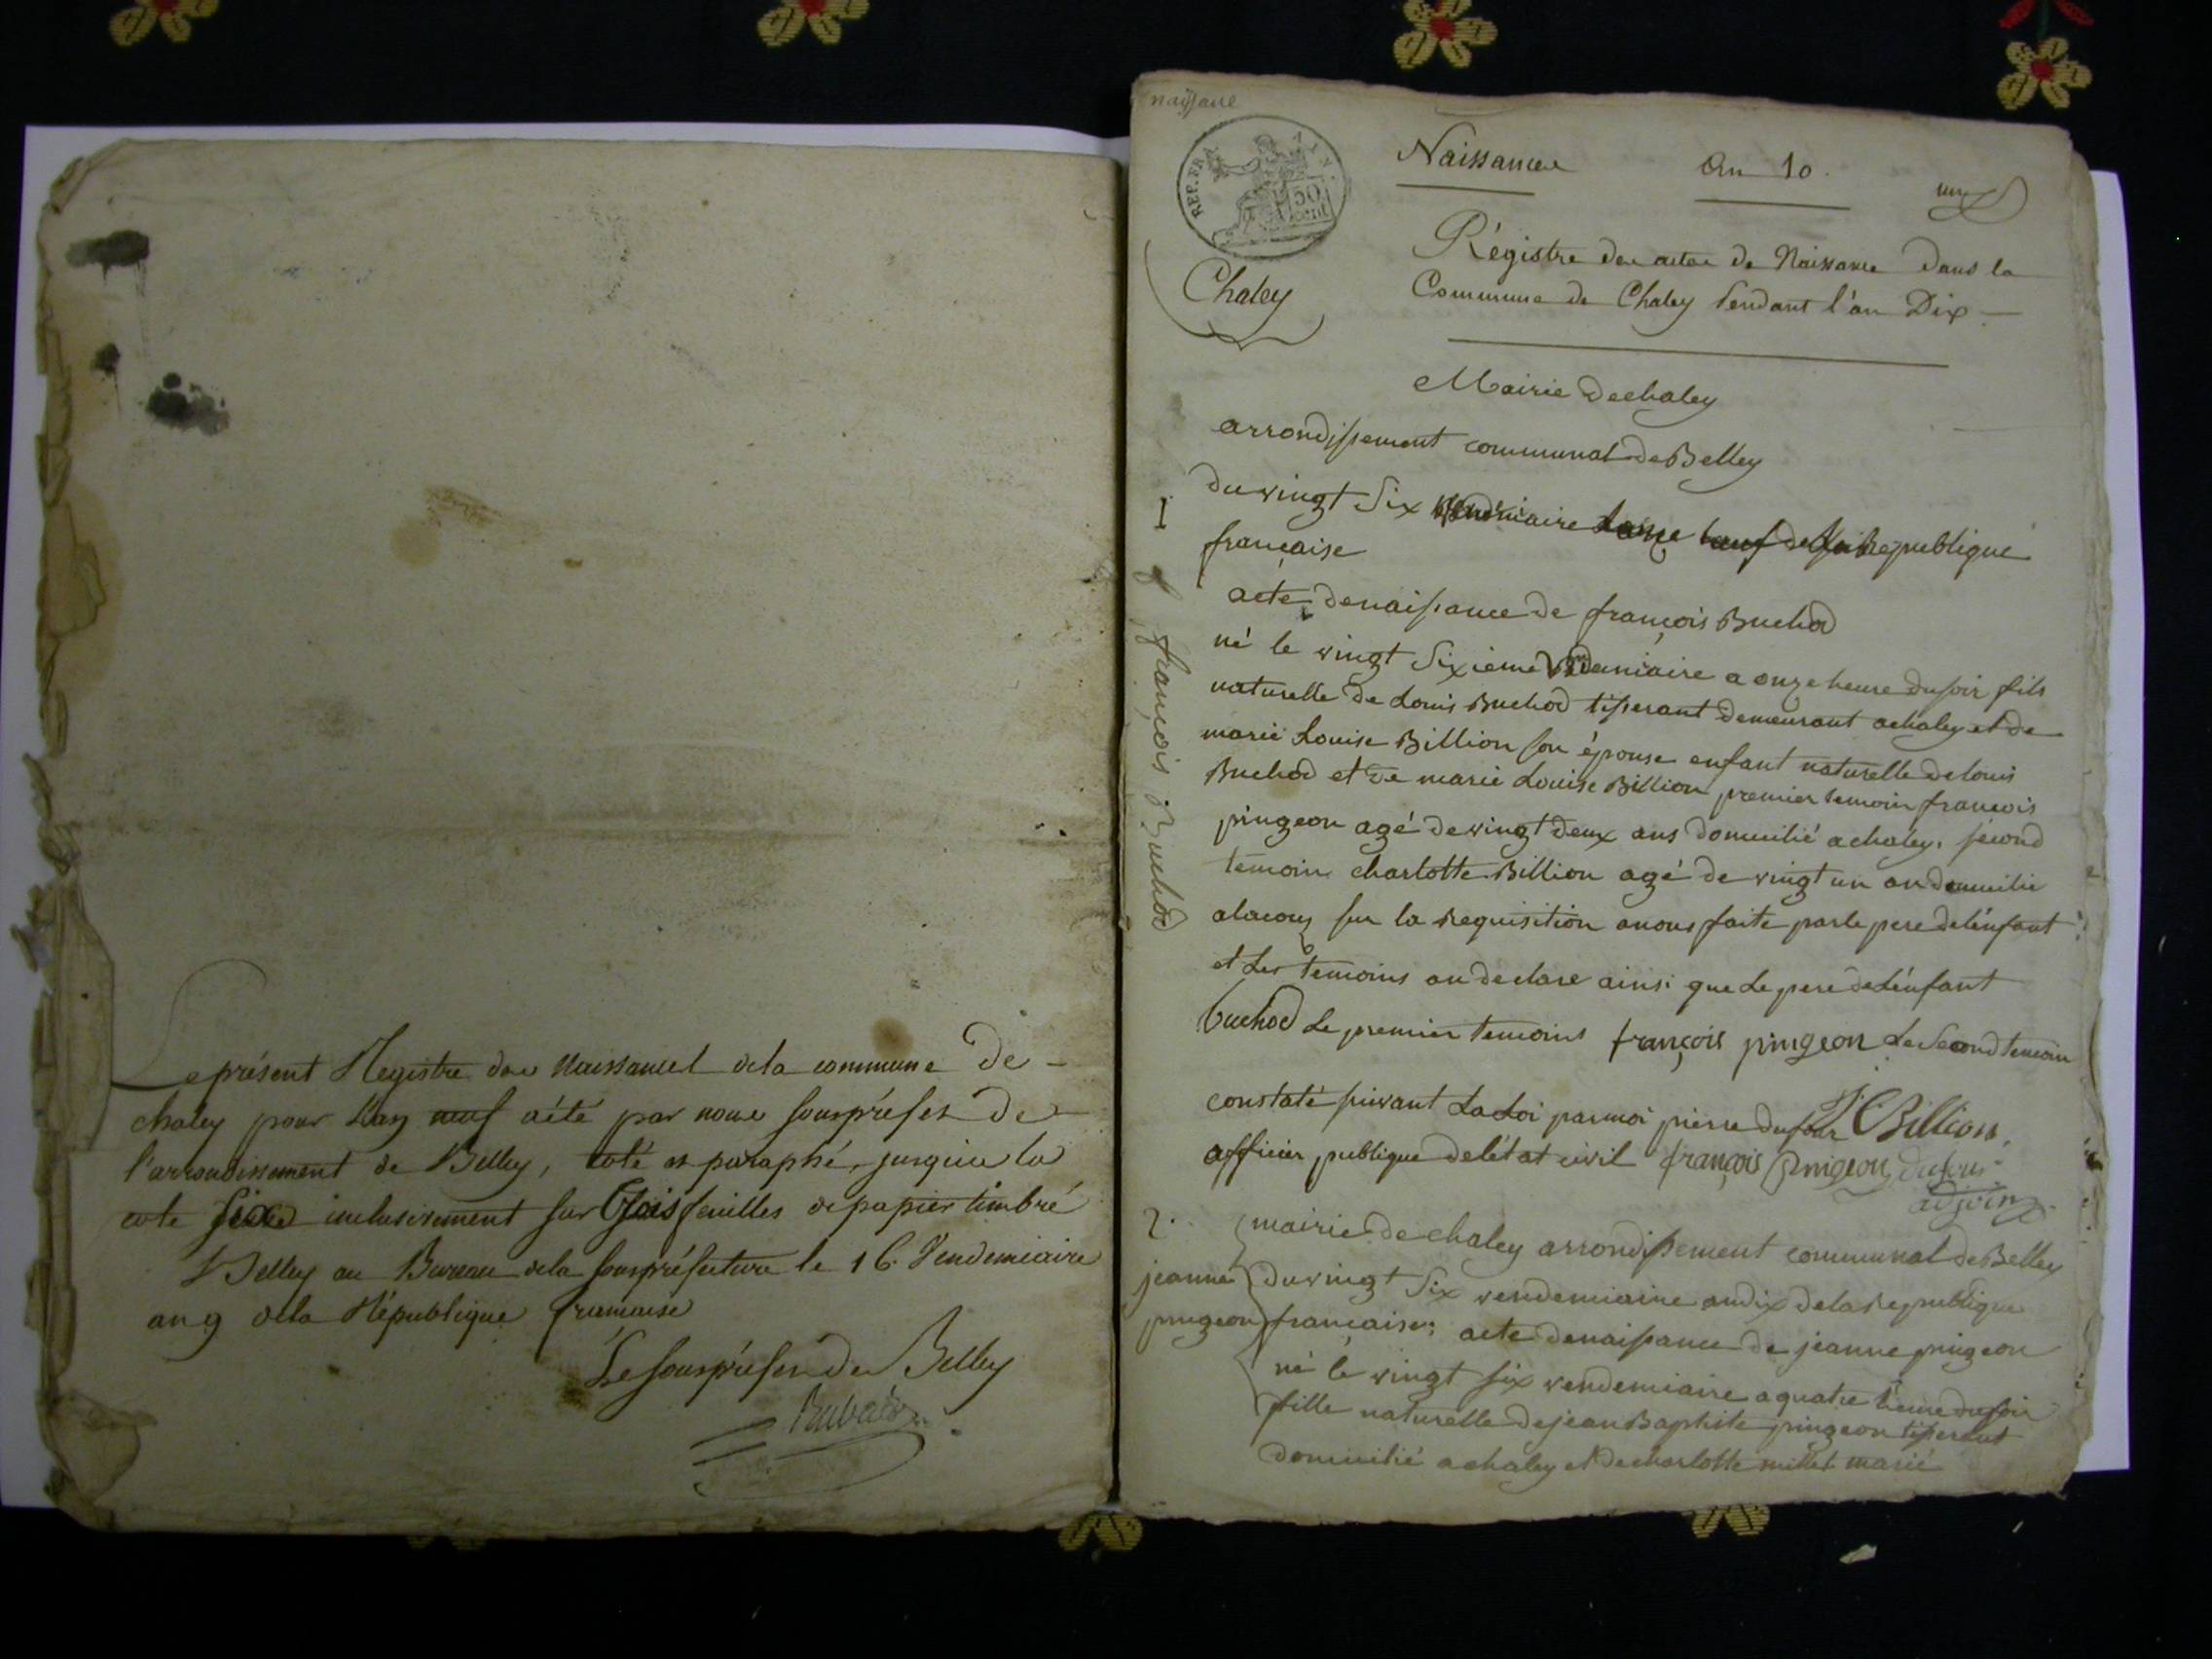 Le présent Registre des Naissances dela commune De
chaley pour l'an neuf aété par nous souspréfet De
l'arrondissement de Belley, coté et paraphé, jusqu'a la
cote sixe inclusivement sur trois feuilles de papier timbré
Belley au Bureau dela souspréfecture le 16 Vendemiaire
an 9 dela République francaise
Le souspréfet de Belley
naissance
REP. FRA.
50
cent
Naissances An 10.
une
Chaley
Régistre des actes de Naissance Dans la
Commune de Chaley Pendant l'an Dix
Mairie De chaley
arrondissement communal de Belley
1
françois Buchod
du vingt Six vendemiaire de la Republique
française
acte de naissance de françois Buchod
né le vingt Sixieme Vendemiaire a onze heure du soir fils
naturelle de Louis Buchod tisserant demeurant a chaley et de
marie Louise Billion son épouse enfant naturelle de louis
Buchod et de marie Louise Billion premier temoin francois
pingeon agé de vingt deux ans domicilié a chaley. second
temoin charlotte Billion agé de vingt un an domicilie
alacoux sur la requisition a nous faite par le pere de l'énfant
et Les temoins on declare ainsi que Le pere de L'énfant
buchod Le premier temoins françois pingeon Le Second temoin
constaté suivant La Loi par moi pierre dufour C Billion
officier publique de l'état civil françois pingeon dufour
adjoin
2.
jeanne
pingeon
mairie de chaley arrondissement communal de Belley
du vingt Six vendemiaire an dix de la Republique
française; acte de naissance de jeanne pingeon
né le vingt six vendemiaire a quatre heure du soir
fille naturelle de jean Baptiste pingeon tisserant
domicilié a chaley et de charlotte millet marié